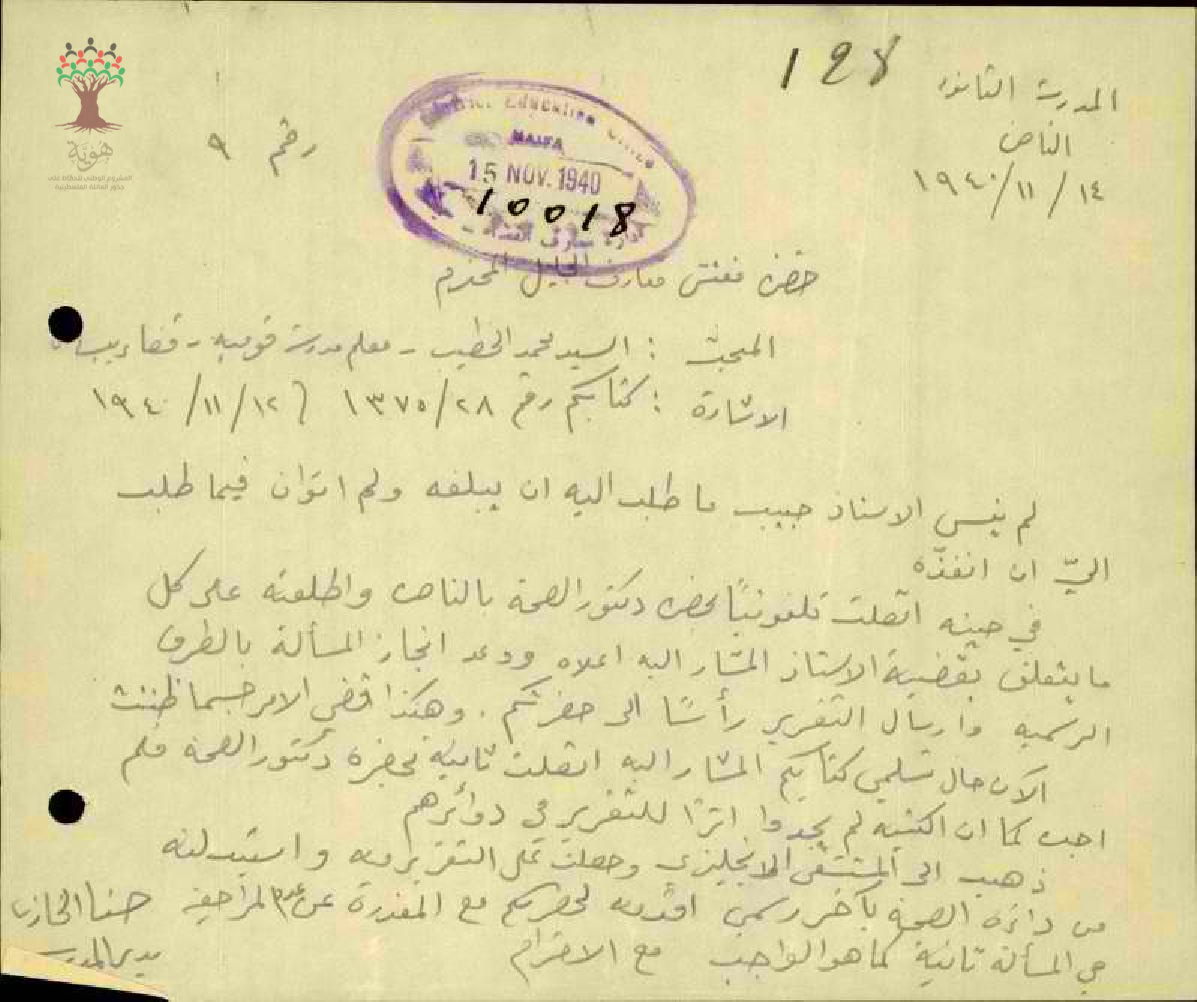 128
المدرسة الثانوية
الناصرة
١٤ / ١١ / ١٩٤٠
رقم ٩
هوية
المشروع الوطني للحفاظ على
جذور العائلة الفلسطينية
District Education Office
HAIFA
15 NOV. 1940
10018
ادارة معارف
حضرة مفتش معارف الجليل المحترم
المبحث : السيد محمد الخطيب - معلم مدرسة قومية - قضاء بيسان
الاشارة : كتابكم رقم ١٣٧٥/٢٨ ١٩٤٠/١١/١٢
لم ينس الاستاذ حبيب ما طلب اليه ان يبلغه ولم اتوان فيما طلب
اليّ ان انفذّه
في حينه اتصلت تلفونيًا بحضرة دكتور الصحة بالناصرة واطلعته على كل
ما يتعلق بقضية الاستاذ المشار اليه اعلاه ووعد انجاز المسألة بالطرق
الرسمية وارسال التقرير رأسًا الى حضرتكم . وهكذا قضي الامر حسبما ظننت
الآن حال تسلمي كتابكم المشار اليه اتصلت ثانية بحضرة دكتور الصحة فلم
اجب كما ان الكتبة لم يجدوا اثرًا للتقرير في دوائرهم
ذهبت الى المستشفى الانجليزي وحصلت على التقرير منه واستبدلته
من دائرة الصحة بآخر رسمي اقدمه لحضرتكم مع المعذرة عن عدم المراجعة
في المسألة ثانية كما هو الواجب مع الاحترام
حنا الخازن
مدير المدرسة